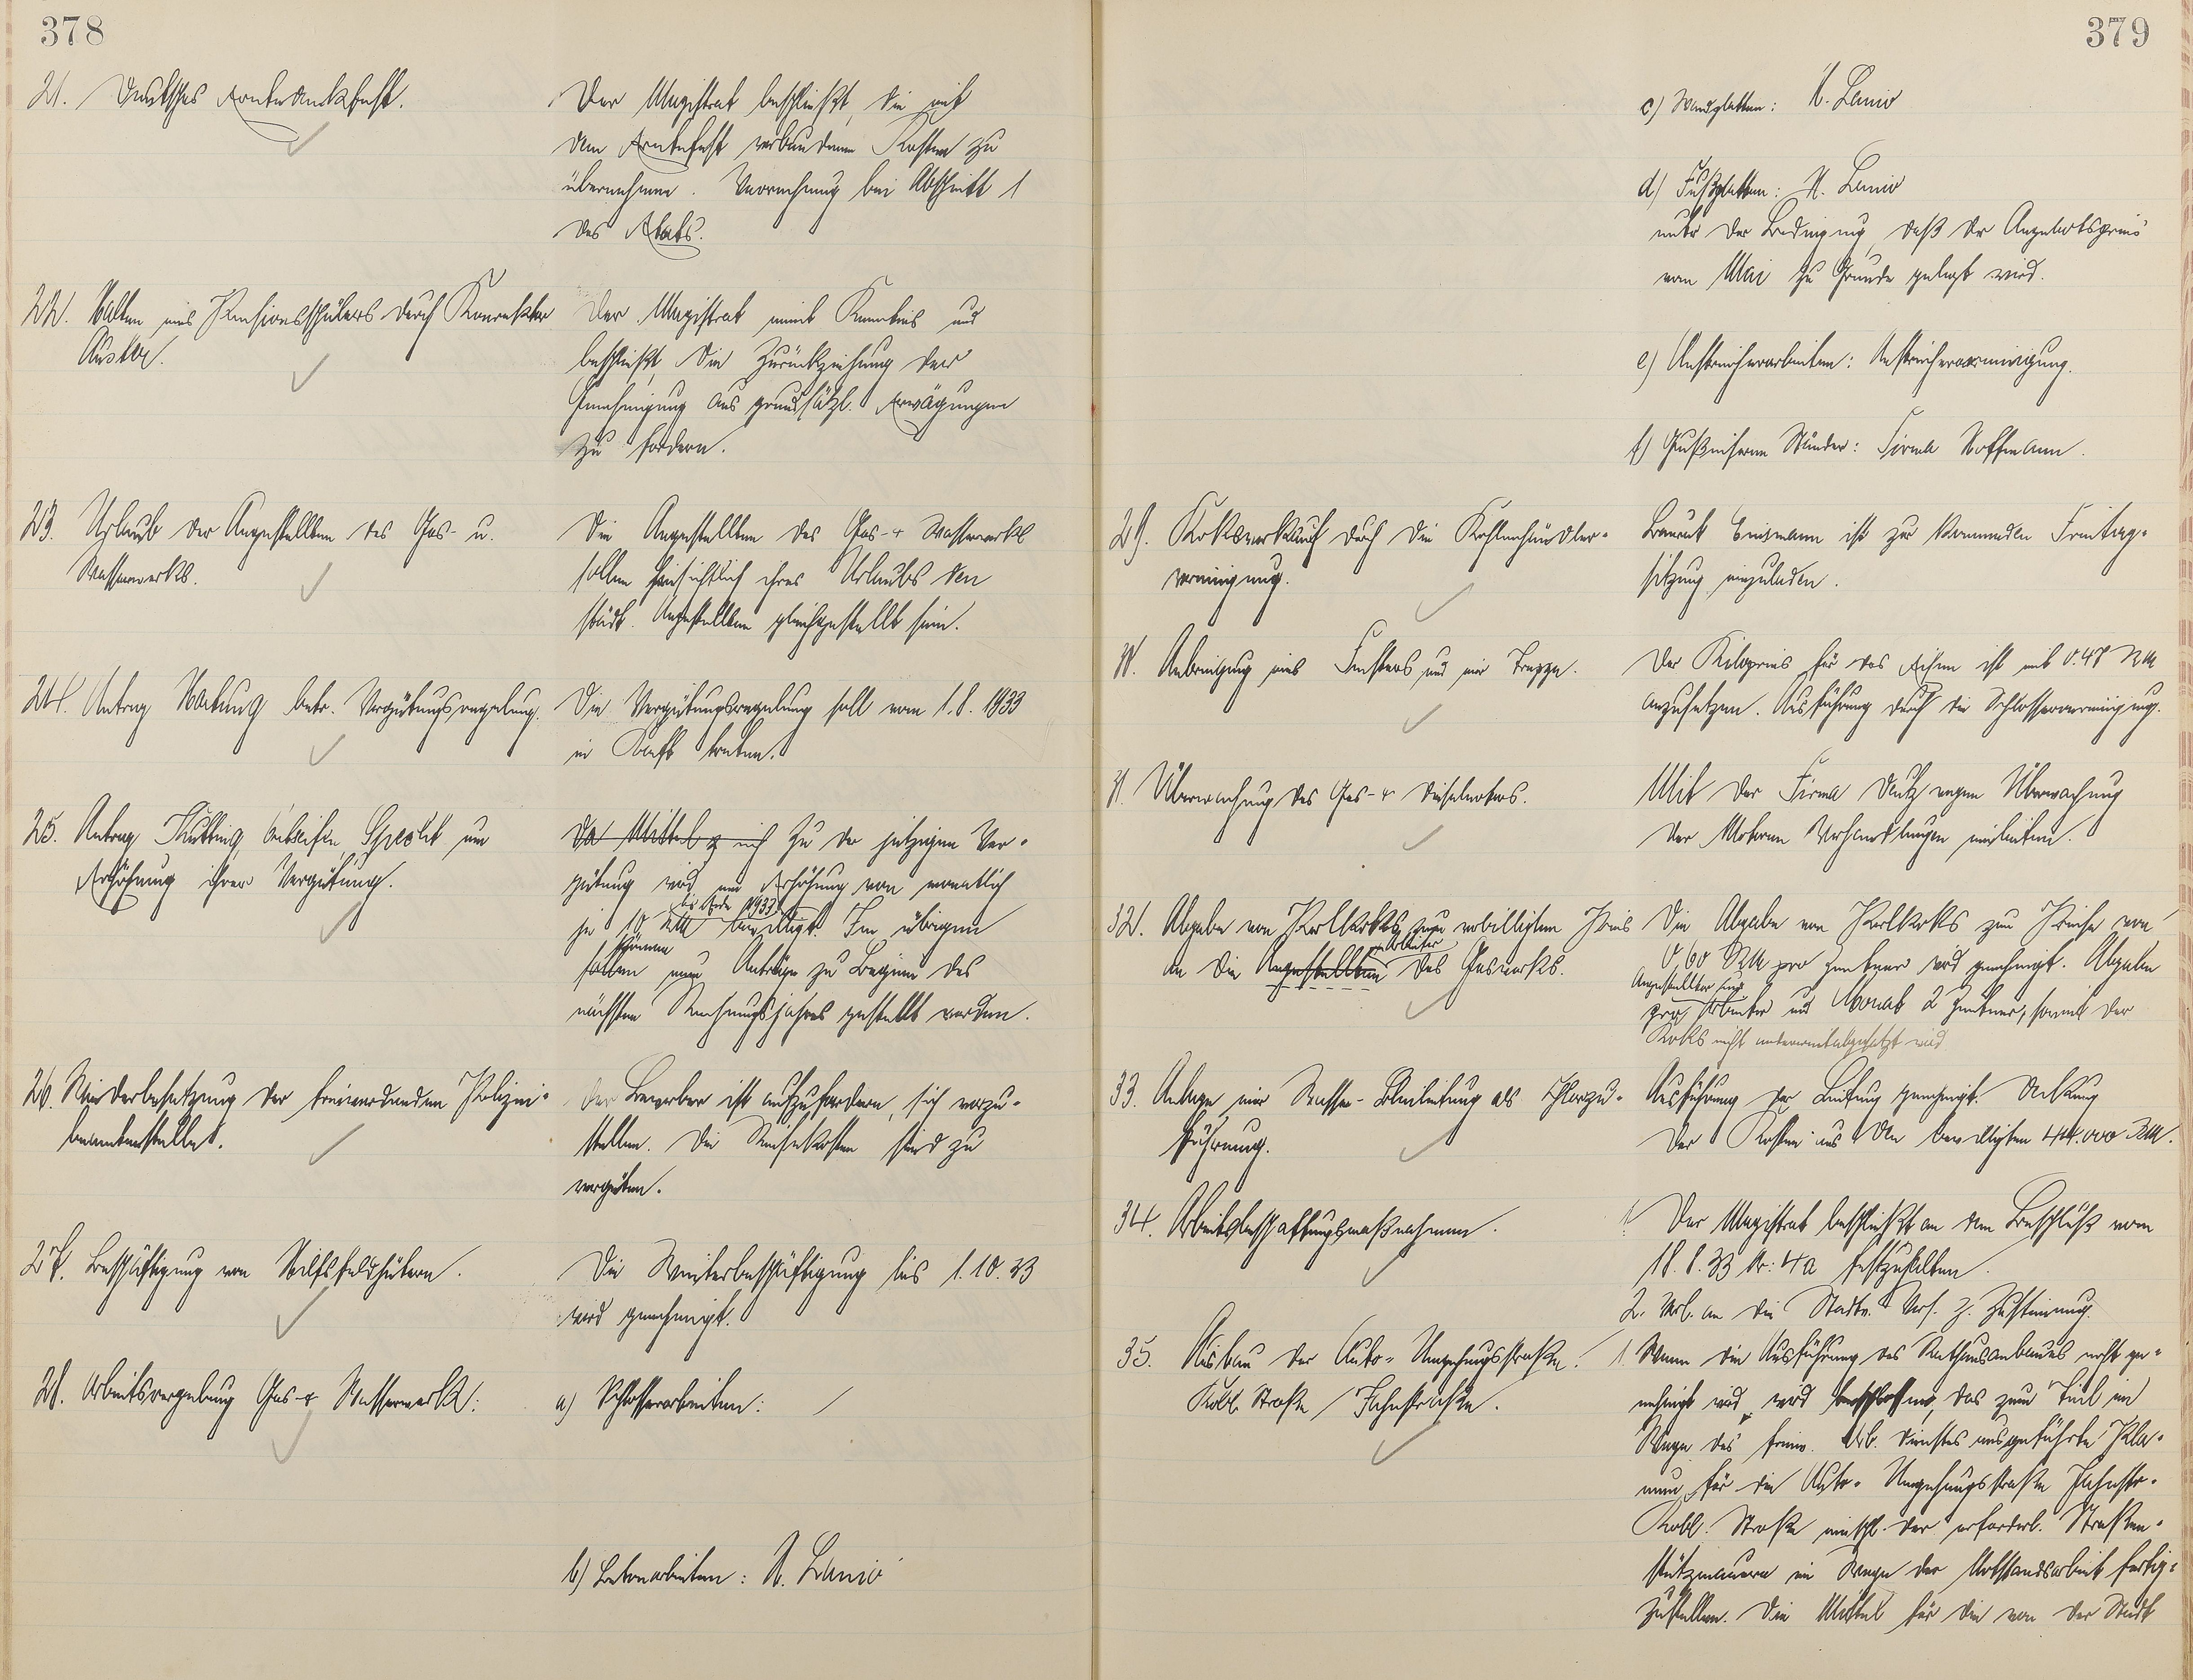 378
21. Deutsches Erntedankfest.
Der Magistrat beschließt, die mit
dem Erntefest verbundenen Kosten zu
übernehmen. Verrechnung bei Abschnitt 1
des Etats.
22. Halten eines Pensionsschülers durch Konrektor
Der Magistrat nimmt Kenntnis und
beschließt, die Zurückziehung der
Genehmigung aus grundsätzl. Erwägungen
zu fordern.
23. Urlaub der Angestellten des Gas- u.
Wasserwerks.
Die Angestellten des Gas- & Wasserwerks
sollen hinsichtlich ihres Urlaubs den
städt. Angestellten gleichgestellt sein.
24. Antrag Hartung betr. Vergütungsregelung.
Die Vergütungsregelung soll vom 1.8.1933
in Kraft treten.
25. Antrag um
Erhöhung ihrer Vergütung.
Da Mittel nich Zu der jetzigen Ver-
gütung wird eine Erhöhung von monatlich
bis Ende 1933
je 10 RM bewilligt. Im übrigen
können
sollen neue Anträge zu Beginn des
nächsten Rechnungsjahres gestellt werden.
26. Wiederbesetzung der freiwerdenden Polizei-
beamtenstelle.
Der Bewerber ist aufzufordern, sich vorzu-
stellen. Die Reisekosten sind zu
vergüten.
27. Beschäftigung von Hilfsfeldhütern.
Die Weiterbeschäftigung bis 1.10.33
wird genehmigt.
28. Arbeitsvergebung Gas- & Wasserwerk:
a) Schlosserarbeiten: /
b) Betonarbeiten: H. Lanio
379
c) Wandplatten: H. Lanio
d) Fußplatten: H. Lanio
unter der Bedingung, daß der Angebotspreis
vom Mai zu Grunde gelegt wird.
e) Anstreicherarbeiten: Anstreichervereinigung.
f) Gußeiserne Ständer: Firma Hoffmann.
29. Koksverkauf durch die Kohlenhändler-
vereinigung.
Baurat ist zur kommenden Freitag-
sitzung einzuladen.
30. Anbringung eines Fensters und einer Treppe.
Der Kilopreis für das Eisen ist mit 0.48 RM
anzusetzen. Ausführung durch die Schlosservereinigung.
31. Überwachung des Gas- & Dieselmotors.
Mit der Firma Deutz wegen Überwachung
der Motoren Verhandlungen einleiten.
32. Abgabe von Perlkoks zum verbilligten Preis
Arbeiter
an die Angestellten des Gaswerks.
Die Abgabe von Perlkoks zum Preise von
0,60 RM pro Zentner wird genehmigt. Abgabe
Angestellter und
pro Arbeiter und Monat 2 Zentner, soweit der
Koks nicht anderweit abgesetzt wird
33. Anlage einer Wasser-Bleileitung als Chlorzu-
führung.
Ausführung der Leitung genehmigt. Deckung
der Kosten aus den bewilligten 44.000 RM.
34. Arbeitsbeschaffungsmaßnahmen.
1. Der Magistrat beschließt an dem Beschluß vom
18.8.33 Nr: 4a festzuhalten.
2. Url. an die Stadtv. Vers. z. Zustimmung.
35. Ausbau der Auto-Umgehungsstraße.
Kobl. Straße / Jahnstraße.
1. Wenn die Ausführung des Rathausanbaues nicht ge-
nehmigt wird, wird beschlossen, das zum Teil im
Wege des freiw. Arb. Dienstes ausgeführte Pla-
num für die Auto-Umgehungsstraße Jahnstr.-
Kobl. Straße einschl. der erforderl. Straßen-
stützmauern im Wege der Notstandsarbeit fertig-
zustellen. Die Mittel für die von der Stadt